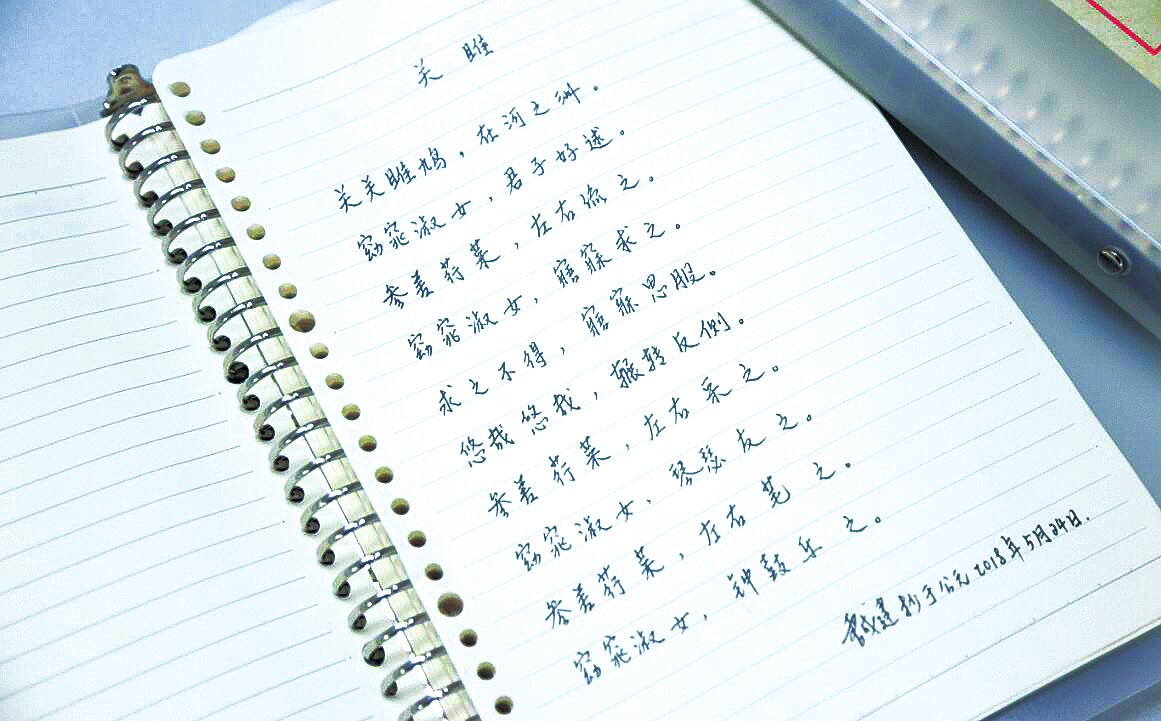 关雎
关关雎鸠，在河之洲。
窈窕淑女，君子好逑。
参差荇菜，左右流之。
窈窕淑女，寤寐求之。
求之不得，寤寐思服。
悠哉悠哉，辗转反侧。
参差荇菜，左右采之。
窈窕淑女，琴瑟友之。
参差荇菜，左右芼之。
窈窕淑女，钟鼓乐之。
抄于公元2018年5月24日.